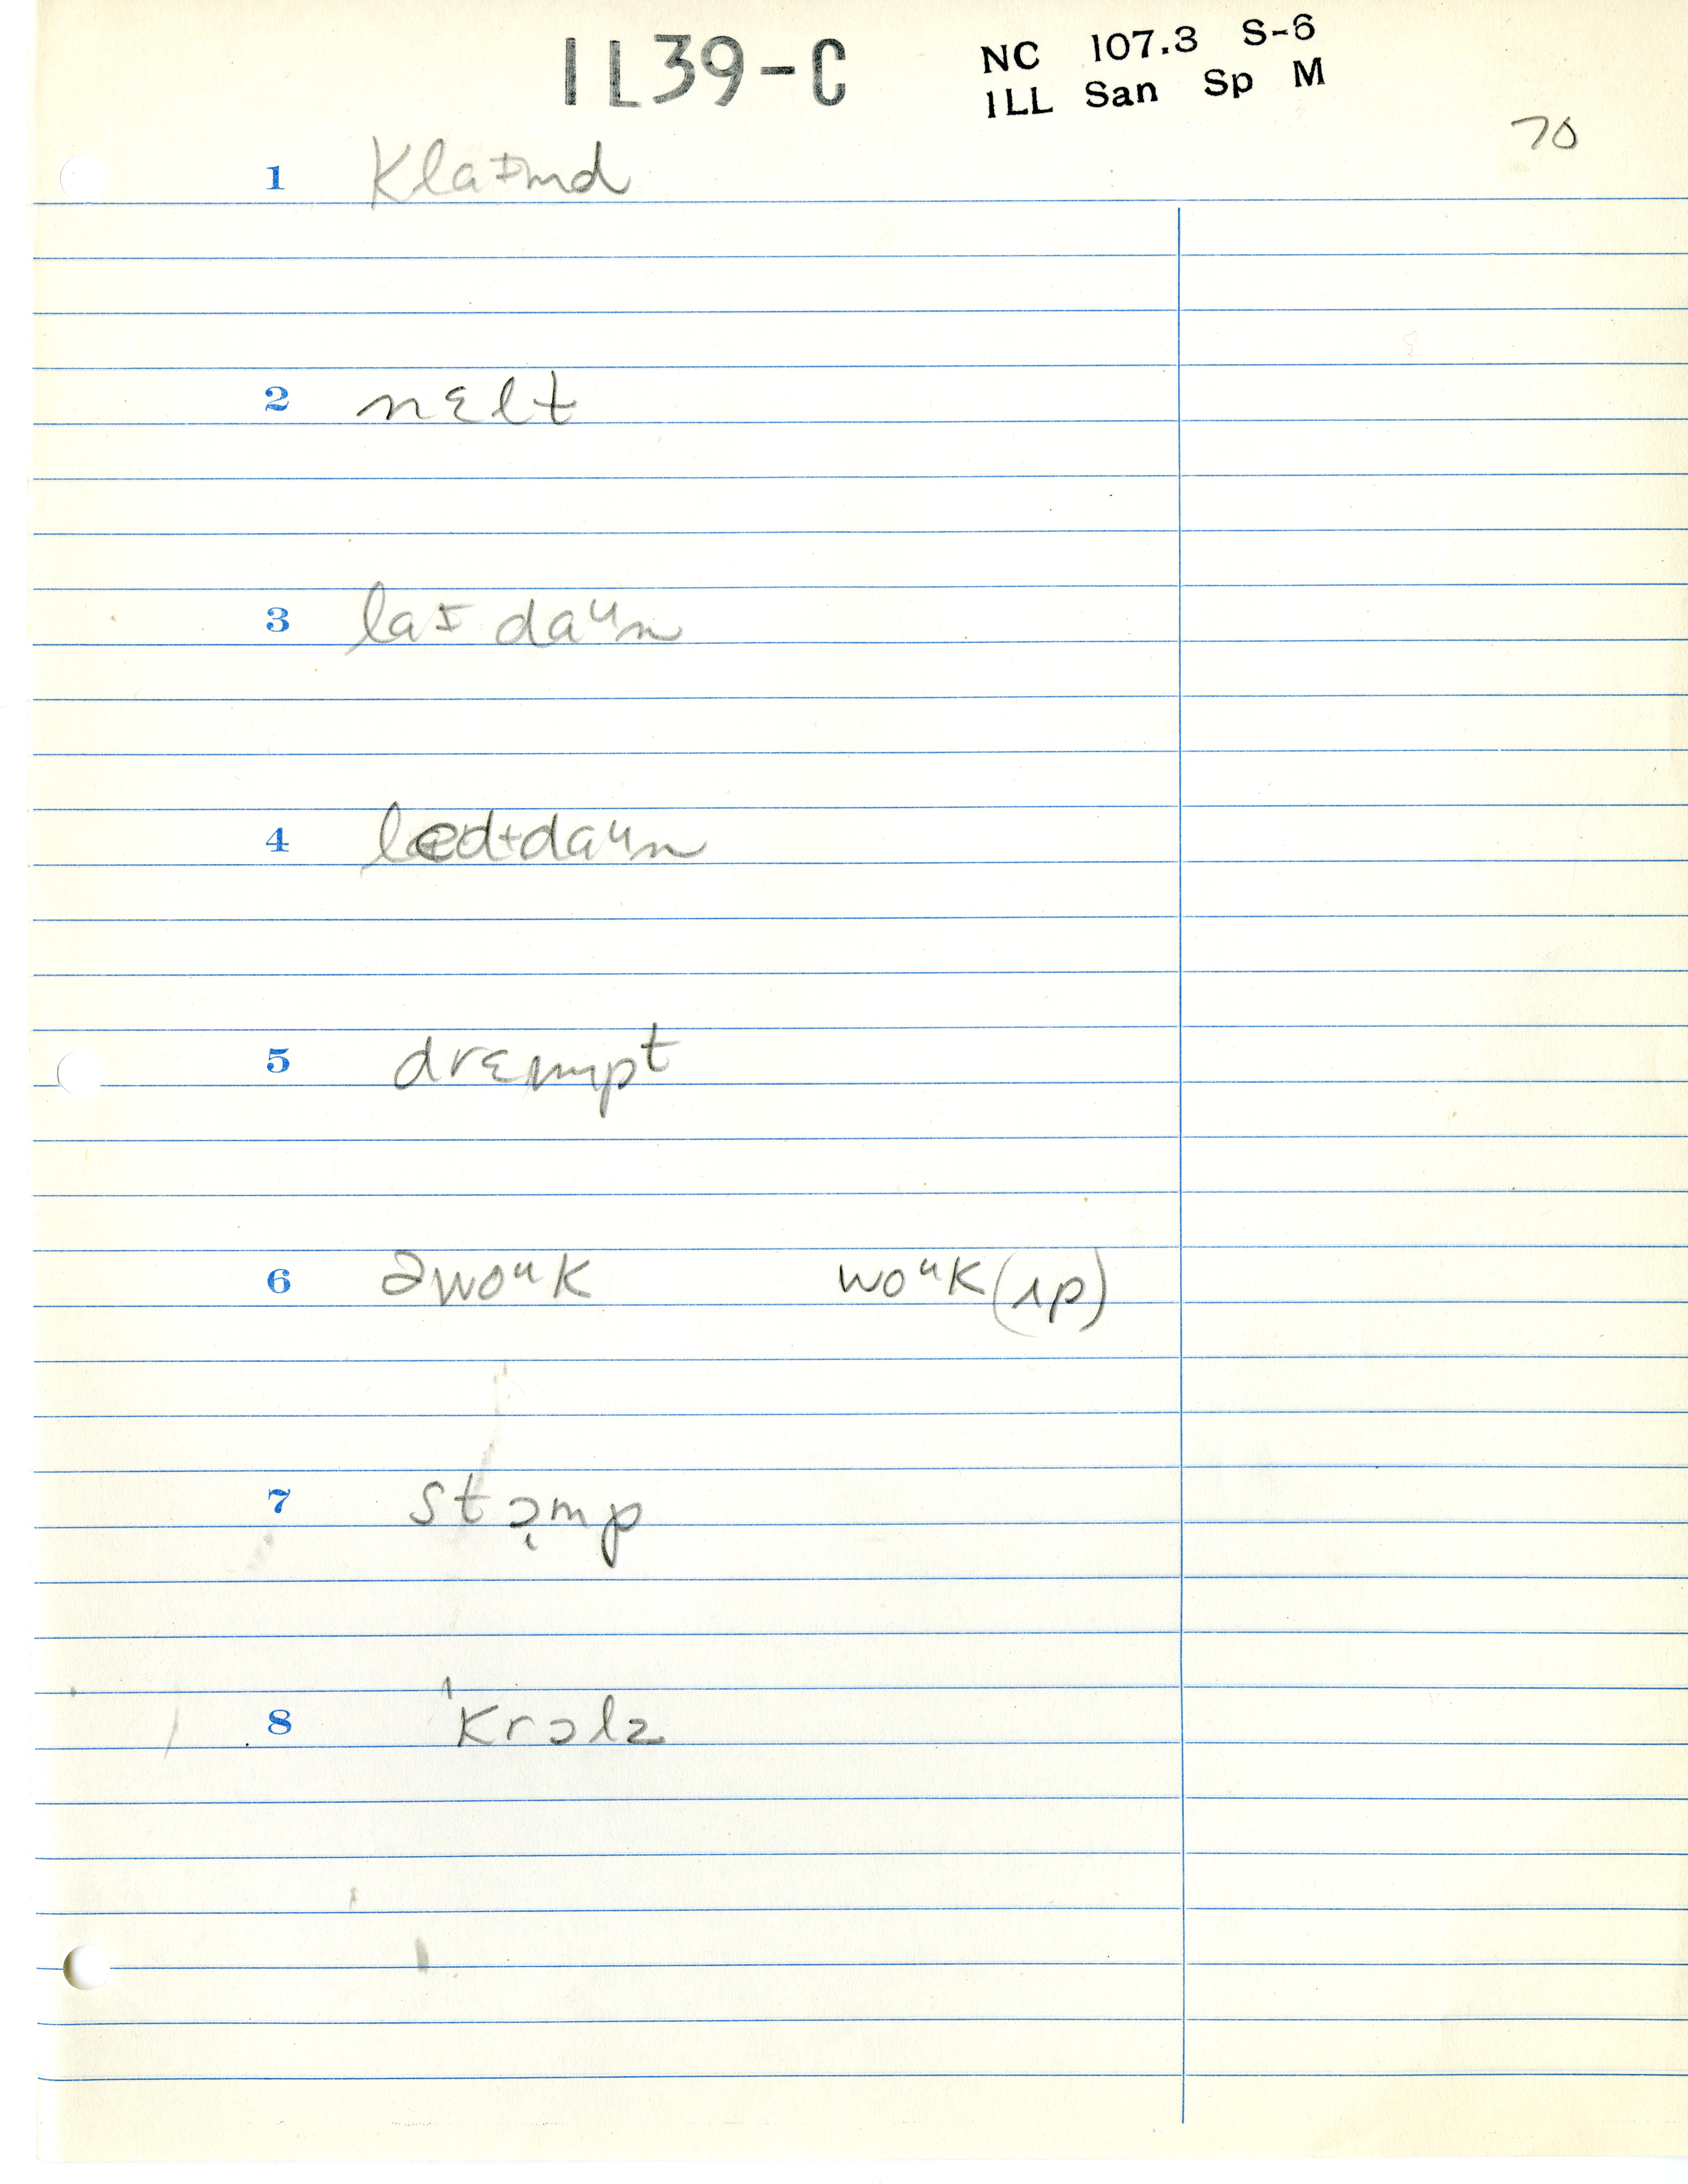 1L39-C
NC 107.3 S-6
1LL San Sp M
70
1 klaɪmd
2 nɛlt
3 laɪ daᵘn
4 daᵘn
5 drɛmpt
6 əwoᵘk woᵘk(ʌp)
7 stɔmp
8 krɔlz